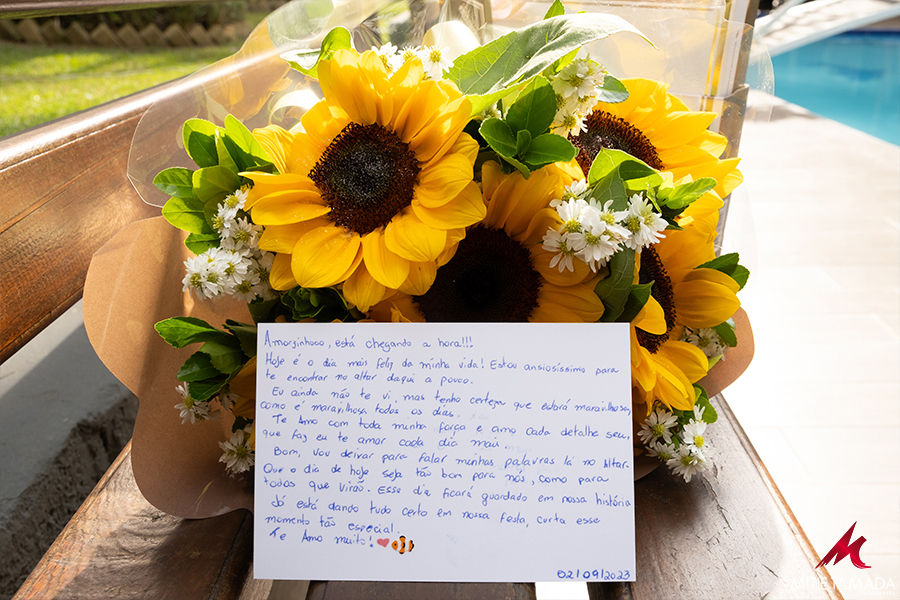 Amorzinhooo, está chegando a hora!!!
Hoje é o dia mais feliz da minha vida! Estou ansiosissimo para
te encontrar no altar daqui a pouco.
Eu ainda não te vi, mas tenho certeza que estará maravilhosa,
como é maravilhosa todos os dias.
Te Amo com toda minha força e amo cada detalhe seu,
que faz eu te amar cada dia mais...
Bom, vou deixar para falar minhas palavras lá no Altar.
Que o dia de hoje seja tão bom para nós, como para
todos que virão. Esse dia ficará guardado em nossa história
Já está dando tudo certo em nossa festa, curta esse
momento tão especial.
Te Amo muito!
02/09/2023